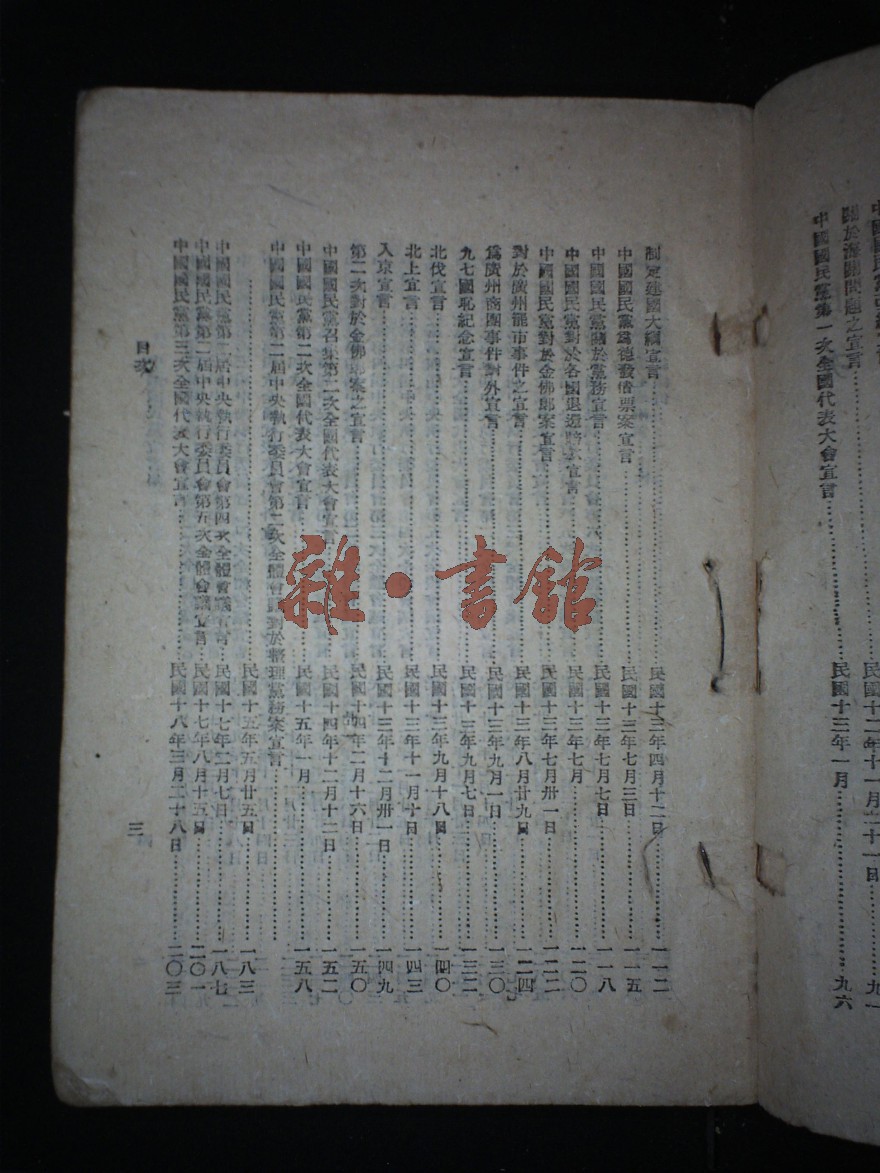 中國國民黨第一次全國代表大會宣言 民國十三年一月 九六
制定建國大綱宣言 民國十三年四月十二日 一一二
中國國民黨爲德發債票案宣言 民國十三年七月三日 一一五
中國國民黨關於黨務宣言 民國十三年七月七日 一一八
中國國民黨對於各國退還賠款宣言 民國十三年七月 一二〇
中國國民黨對於金佛郎案宣言 民國十三年七月卅一日 一二二
對於廣州罷市事件之宣言 民國十三年八月廿九日 一二四
爲廣州商團事件對外宣言 民國十三年九月一日 一三〇
九七國恥紀念宣言 民國十三年九月七日 一三二
北伐宣言 民國十三年九月十八日 一四〇
北上宣言 民國十三年十一月十日 一四三
入京宣言 民國十三年十二月卅一日 一四九
第二次對於金佛郎案之宣言 民國十四年二月十六日 一五〇
中國國民黨召集第二次全國代表大會宣言 民國十四年十二月十二日 一五二
中國國民黨第二次全國代表大會宣言 民國十五年一月 一五八
中國國民黨第二屆中央執行委員會第二次全體會議對於整理黨務案宣言
民國十五年五月廿五日 一八三
中國國民黨第二屆中央執行委員會第四次全體會議宣言 民國十七年二月七日 一八七
中國國民黨第二屆中央執行委員會第五次全體會議宣言 民國十七年八月十五日 二〇一
中國國民黨第三次全國代表大會宣言 民國十八年三月二十八日 二〇三
目次
三
雜·書館